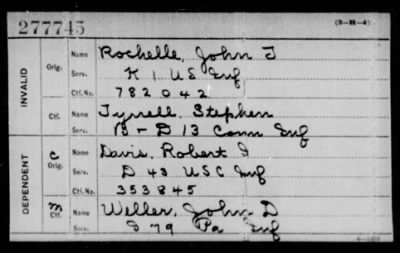 277745 (3-H-4)
INVALID
Orig. Name Rochelle, John T
Serv. K 1 US Inf
Ctf. No. 782042
Ctf. Name Tyrrell, Stephen
Serv. B - D 13 Conn Inf
DEPENDENT
C Orig. Name Davis, Robert I
Serv. D 43 USC Inf
Ctf. No. 353845
m Ctf. Name Weller, John D
Serv. I 79 Pa Inf